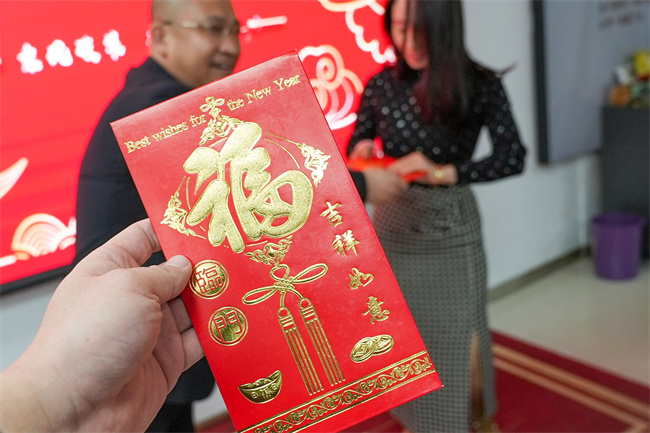 Best wishes for the New Year
福
吉祥如意
臨
門